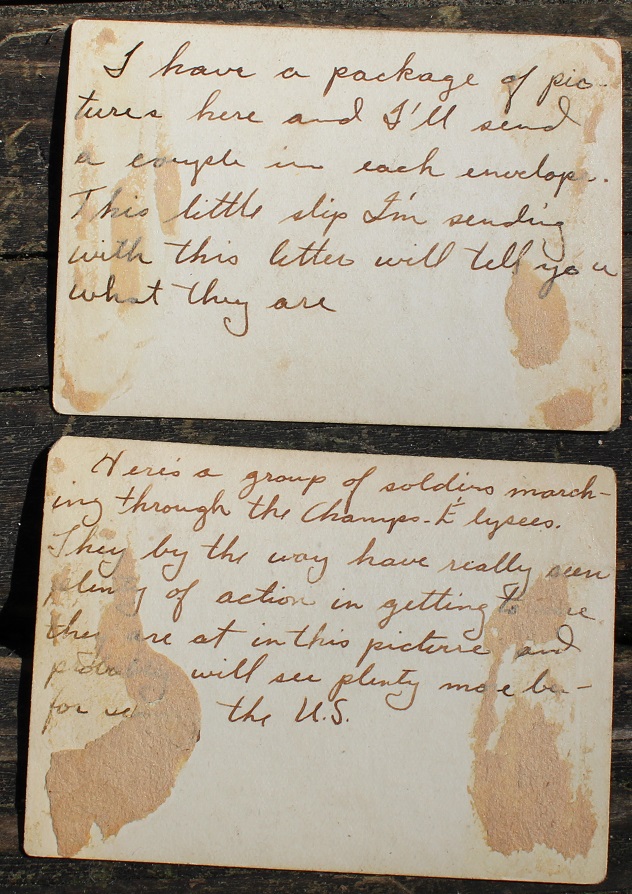 I have a package of pic-
tures here and I'll send
a couple in each envelope.
This little slip I'm sending
with this letter will tell you
what they are
Here's a group of soldiers march-
ing through the Champs-Élysees.
They by the way have really seen
plenty of action in getting to
they are at in this picture and
will see plenty more be-
for the U.S.